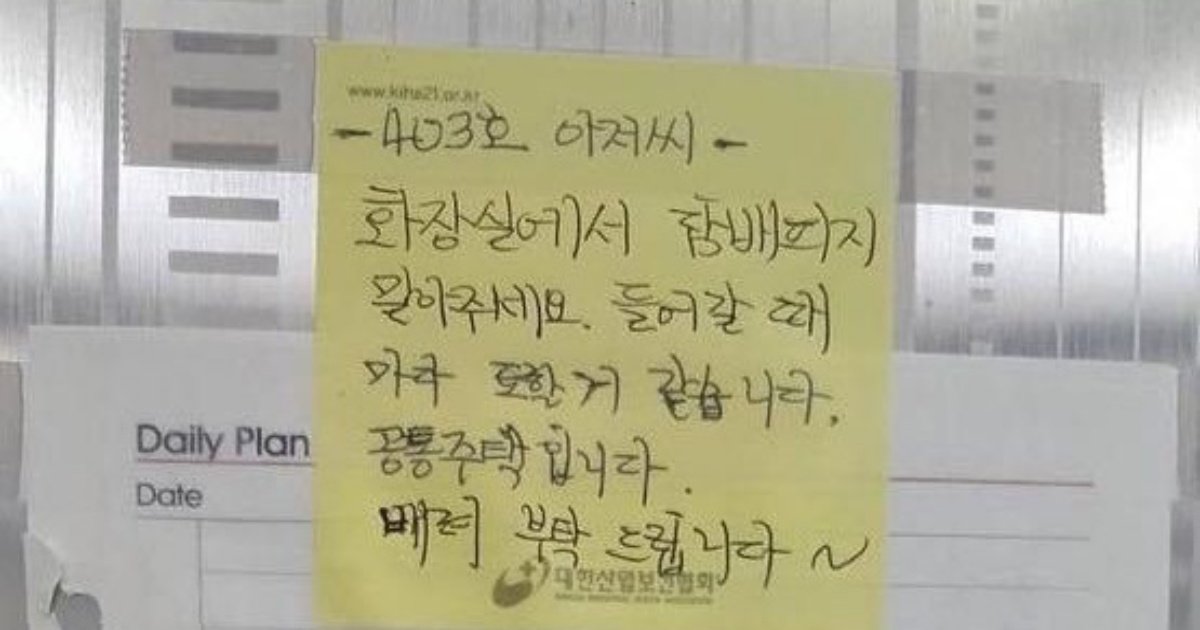 www.kiha21.or.kr
-403호 아저씨-
화장실에서 담배피지
말아주세요. 들어갈 때
마다 토할 거 같습니다.
공통주택입니다.
배려 부탁 드립니다 ~
대한산업보건협회
Daily Plan
Date